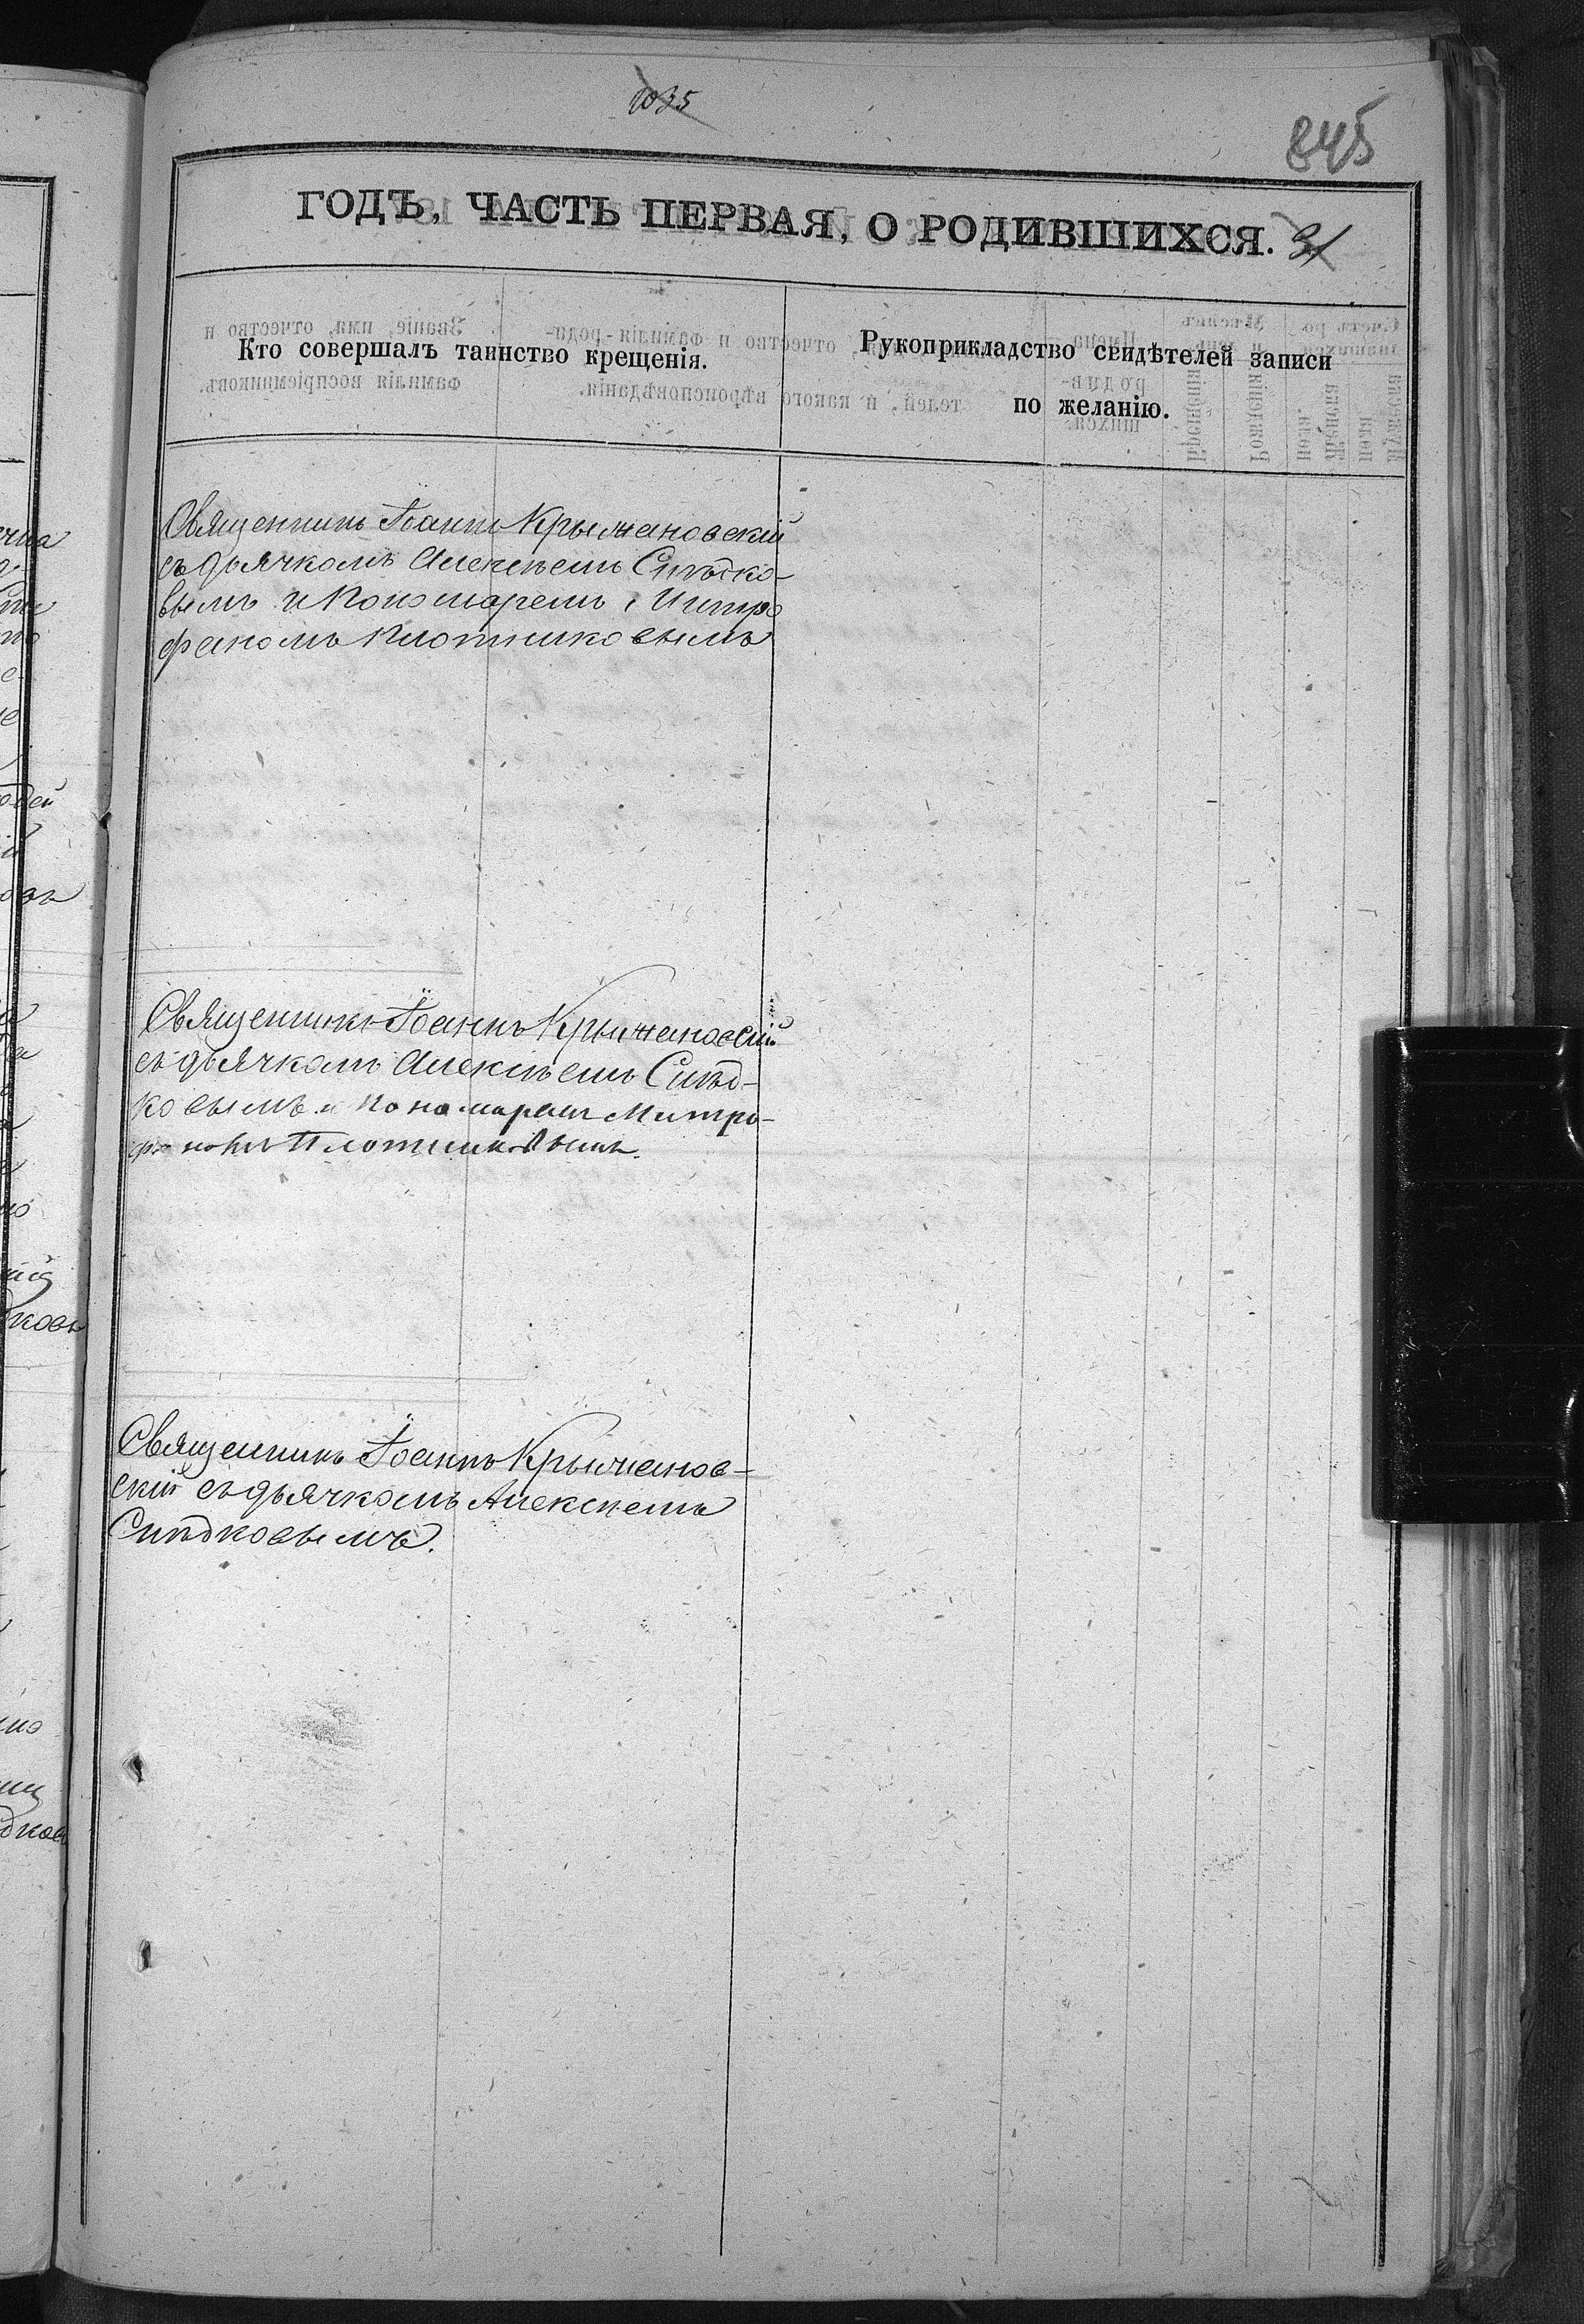 1035
845
ГОДЪ, ЧАСТЬ ПЕРВАЯ, О РОДИВШИХСЯ. 31
Кто совершалъ таинство крещенія.
Рукоприкладство свидѣтелей записи
по желанію.
Священникъ Іоаннъ Крыжановскій
съ дьячкомъ Алексѣемъ Слѣдко-
вымъ и Пономаремъ Митро
фаномъ Плотниковымъ
Священникъ Іоаннъ Крыжановскій
съ дьячкомъ Алексѣемъ Слѣд-
ковымъ и Пономаремъ Митро-
фаномъ Плотниковымъ.
Священникъ Іоаннъ Крыжанов-
скій съ дьячкомъ Алексѣемъ
Слѣдковымъ.